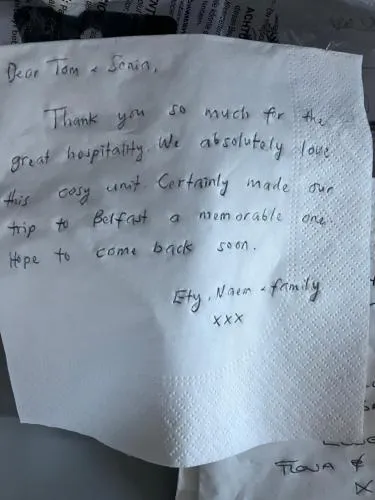 Dear Tom & Sonia,
Thank you so much for the
great hospitality. We absolutely love
this cosy unit. Certainly made our
trip to Belfast a memorable one.
Hope to come back soon.
Ety, Naem & family
xxx
FIONA &
X